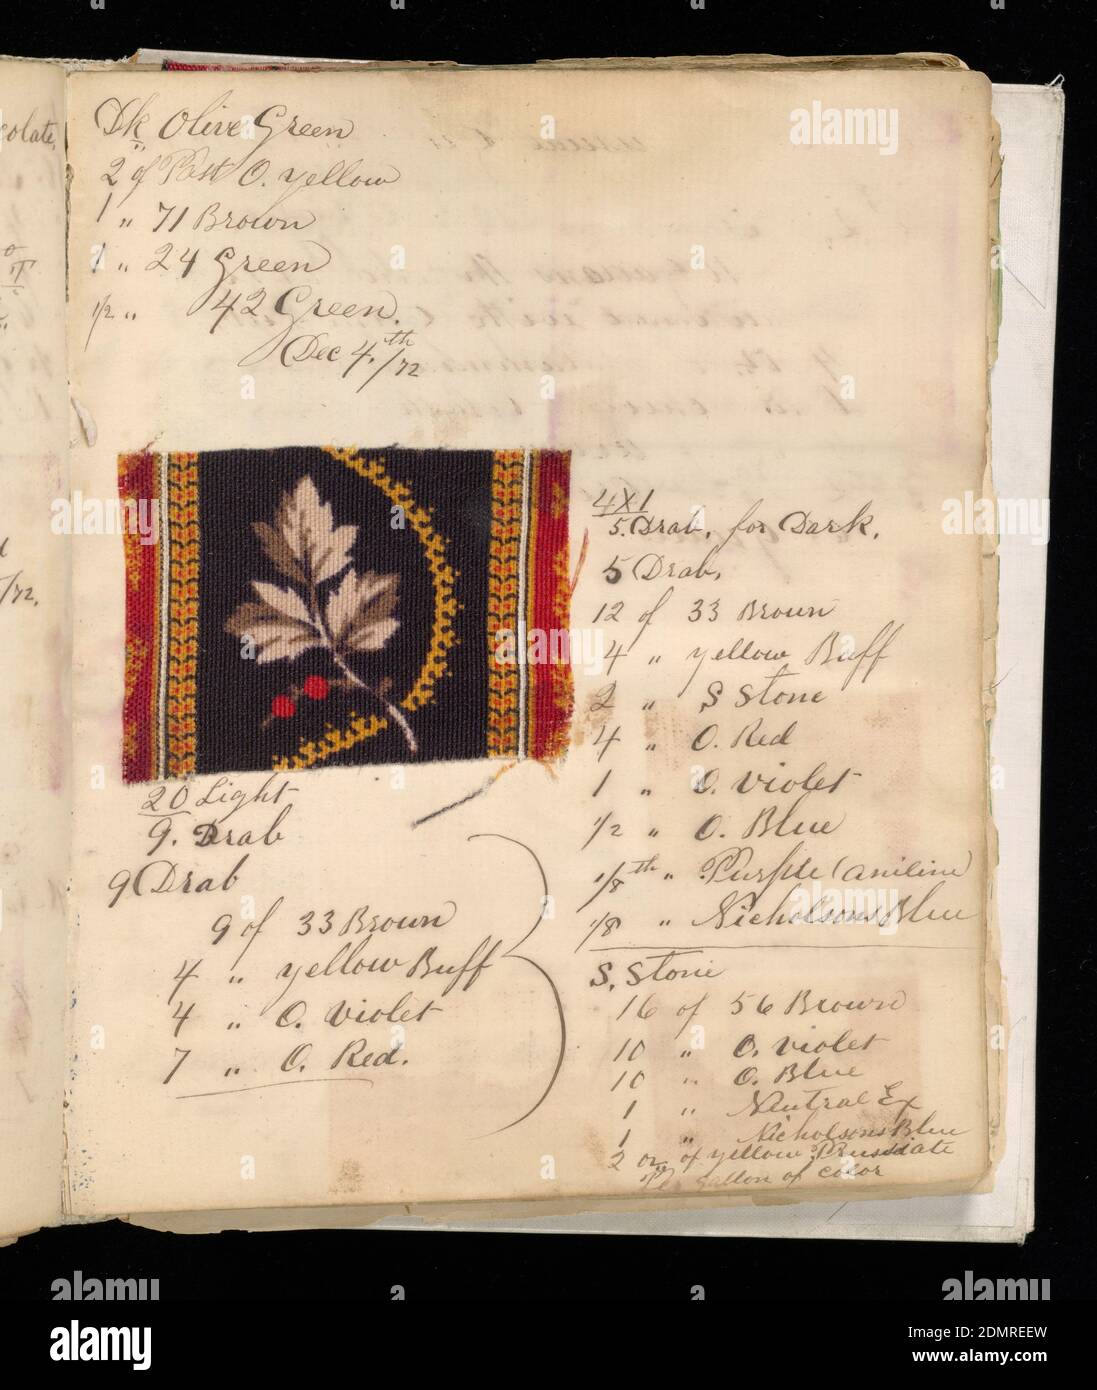 Dk Olive Green
2 of Past O. yellow
1 " 71 Brown
1 " 24 Green
1/2 " 42 Green.
Dec 4.th/72
20 Light
9. Drab
9 Drab
9 of 33 Brown
4 " yellow Buff
4 " O. Violet
7 " O. Red.
4x1
5. Drab, for Dark.
5 Drab.
12 of 33 Brown
4 " yellow Buff
2 " S Stone
4 " O. Red
1 " O. Violet
1/2 " O. Blue
1/8th " Purple (aniline)
1/8 " Nicholsons Blue
S. Stone
16 of 56 Brown
10 " O. Violet
10 " O. Blue
1 " Neutral Ex
1 " Nicholsons Blue
2 oz of yellow Prussiate
Per Gallon of Color
olate,
/72.
alamy
alamy
alamy
alamy
alamy
alamy
Image ID: 2DMREEW
www.alamy.com